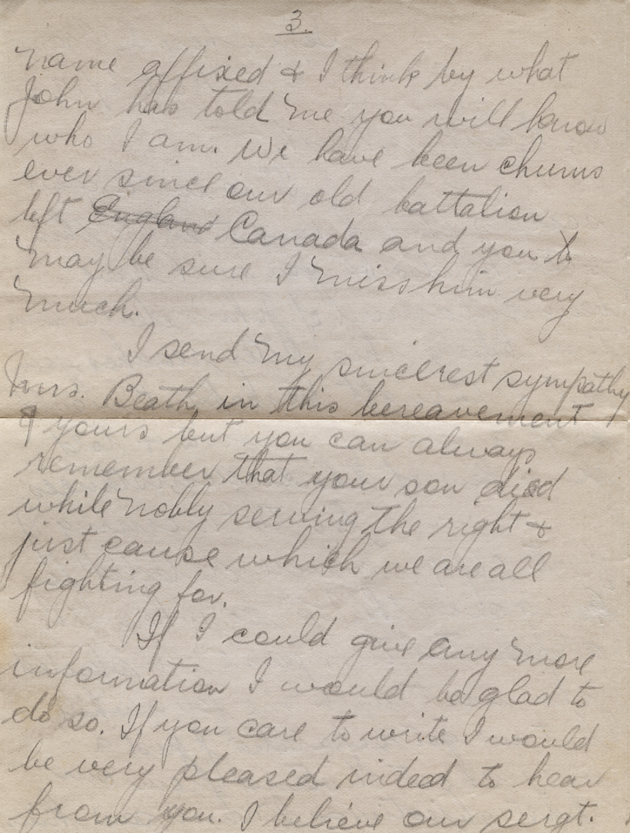 3.
name affixed & I think by what
John has told me you will know
who I am. We have been chums
ever since our old battalion
left England Canada and you
may be sure I miss him very
much.
I send my sincerest sympathy
Mrs. Beath, in this bereavement
of yours but you can always
remember that your son died
while nobly serving the right &
just cause which we are all
fighting for.
If I could give any more
information I would be glad to
do so. If you care to write I would
be very pleased indeed to hear
from you. I believe our sergt.